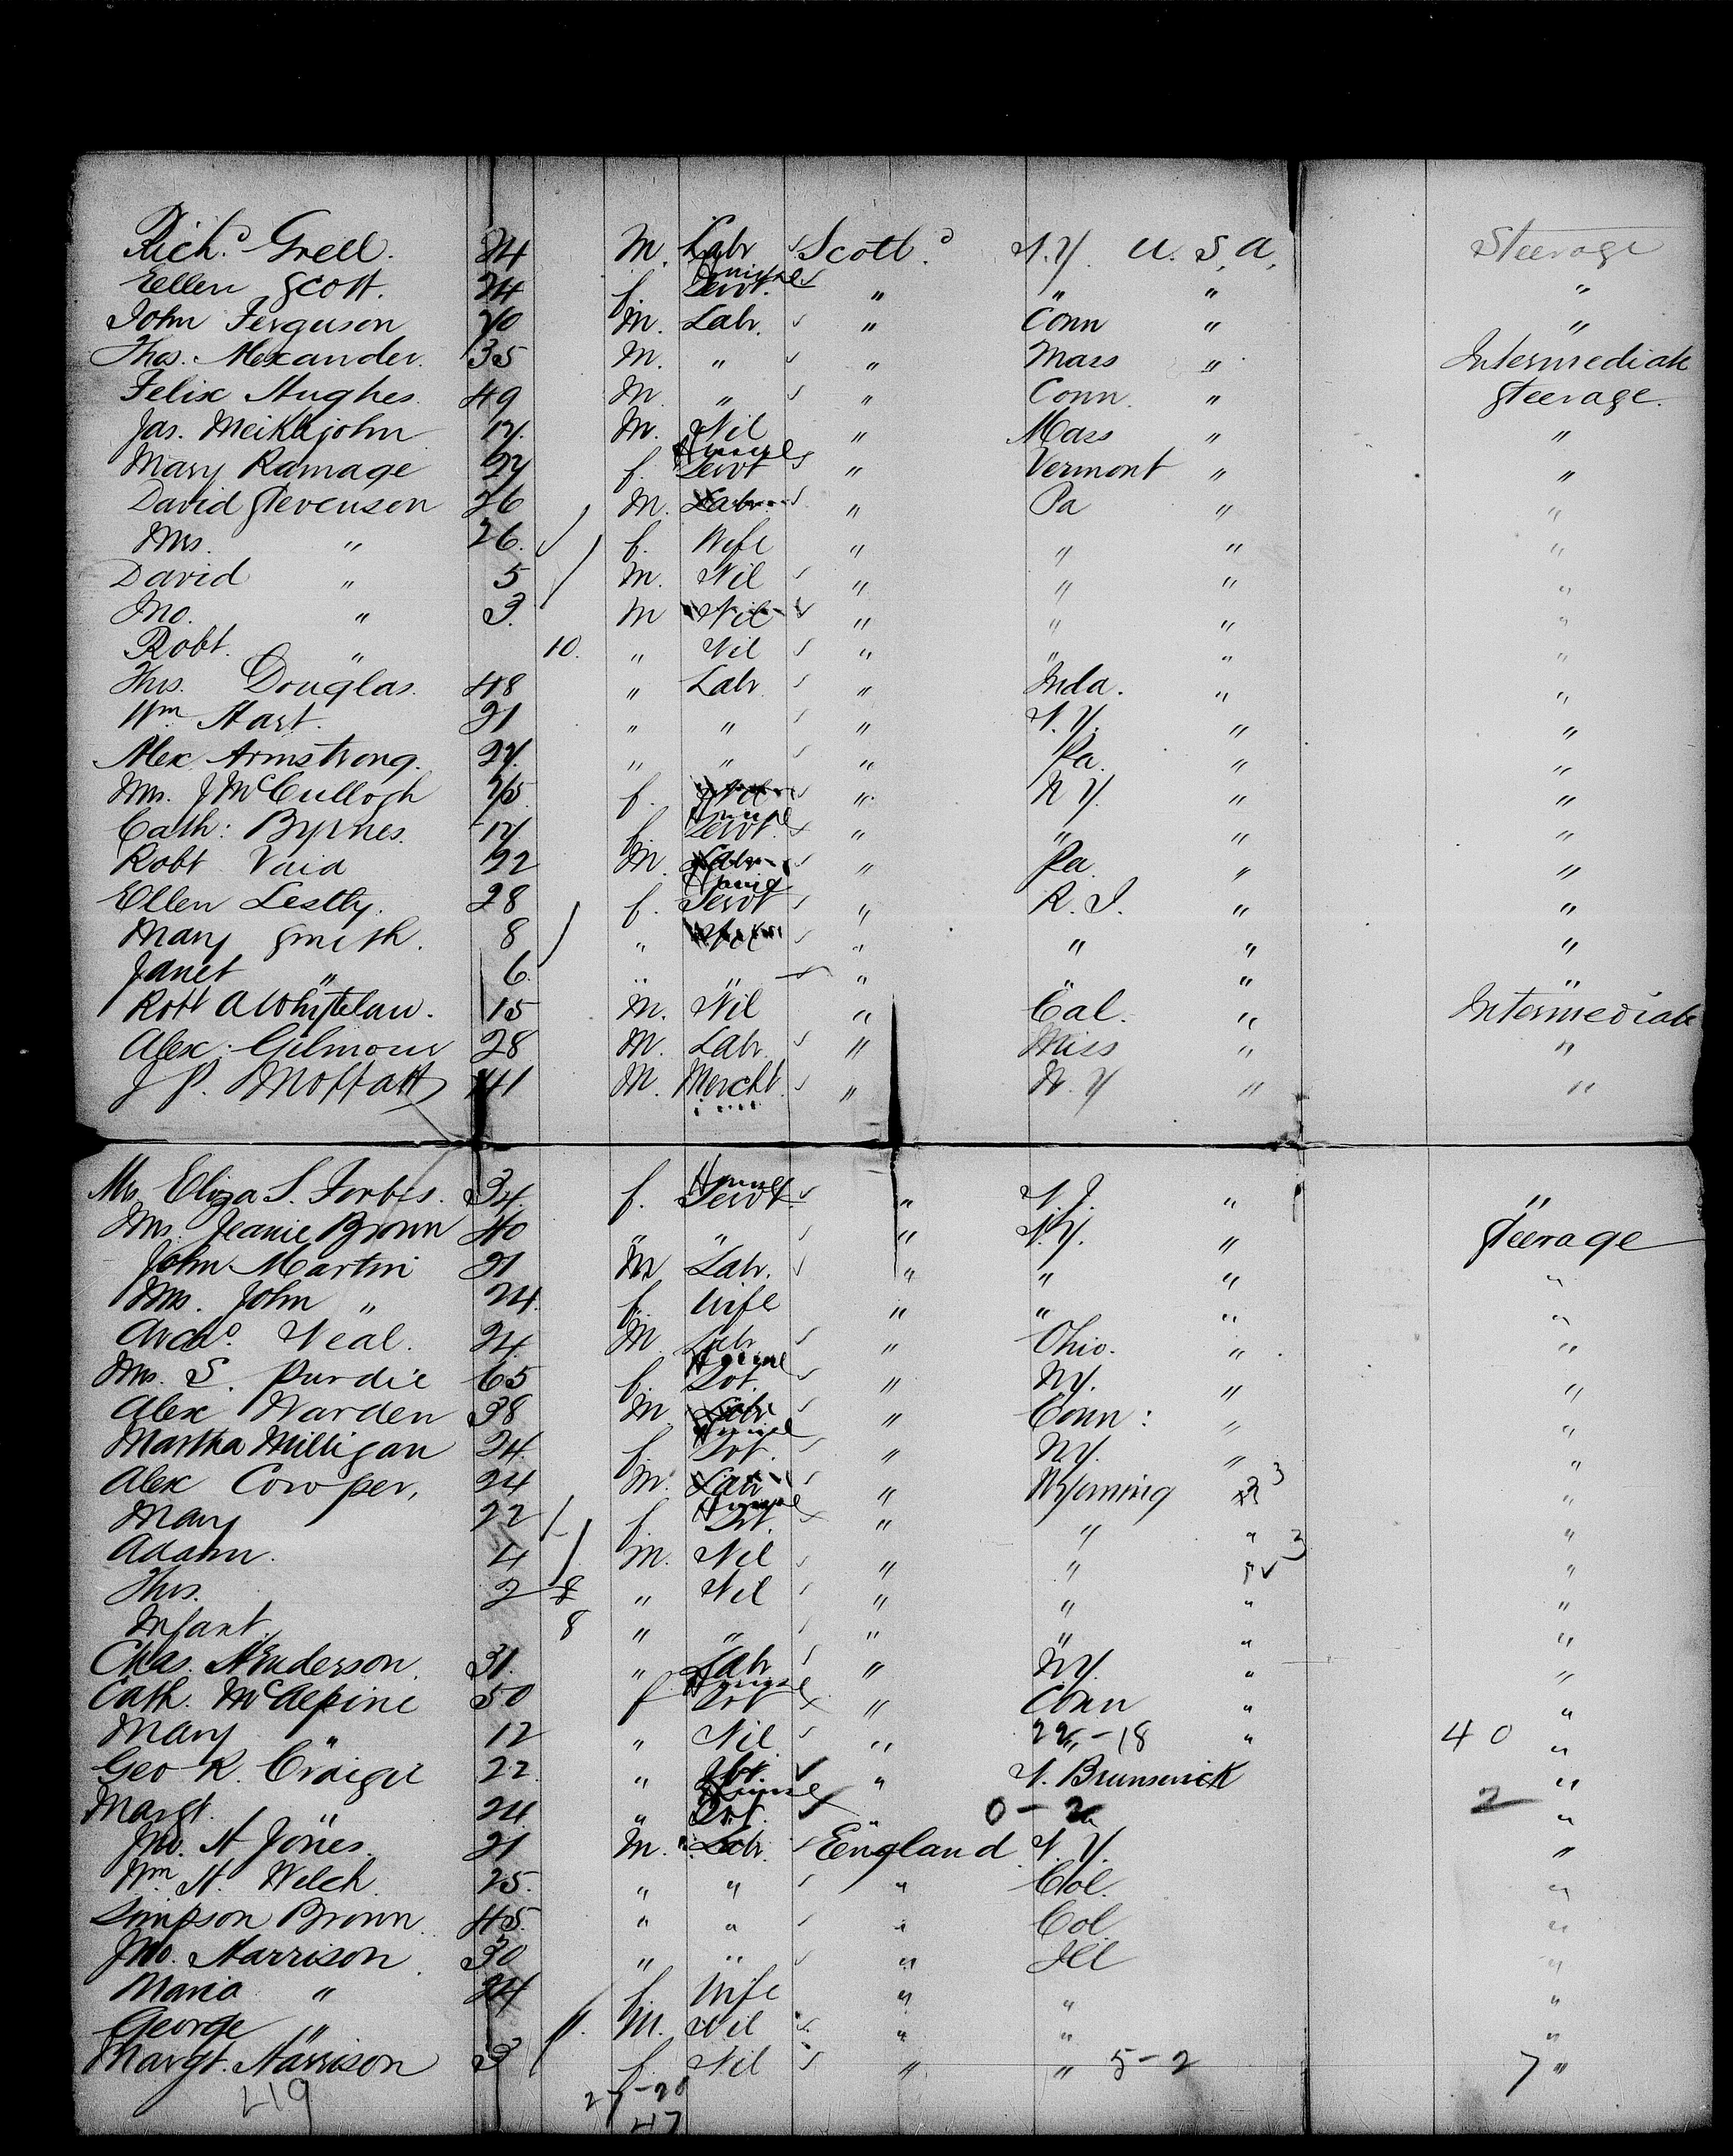 Richd. Grell. 24 M. Labr Scotld N.Y. U.S.A. Steerage
Ellen Scott. 24 f. Servt. " " " "
John Ferguson 20 M. Labr. " Conn " "
Thos. Alexander. 35 M. " " Mass " Intermediate
Felix Hughes. 49 M. " " Conn. " Steerage.
Jas. Meiklejohn 17. M. Nil " Mass " "
Mary Ramage 27 f. Servt " Vermont " "
David Stevenson 26 M. Labr. " Pa " "
Mrs. " 26. f. Wife " " " "
David " 5 M. Nil " " " "
Jno. " 3. M Nil " " " "
Robt. " 10. " Nil " " " "
Thos. Douglas. 48 " Labr. " Inda. " "
Wm. Hart. 21 " " " N.Y. " "
Alex Armstrong. 27. " " " Pa. " "
Mrs. J McCullogh f. Nil " N Y. " "
Cath: Byrnes. 17. f. Servt. " " " "
Robt 22 M. Labr " Pa. " "
Ellen 28 f. Servt " R. I. " "
Mary Smith. 8 " Nil " " " "
Janet " 6. " " " " " "
Robt A Whitelaw. 15 M. Nil " Cal. " Intermediate
Alex. Gilmour 28 M. Labr. " Miss " "
J P. Moffatt 41 M. Mercht. " N.Y " "
Mrs Eliza S. Forbes. 34. f. House Servt. " N.J. " "
Mrs. Jeanie Brown 40 " " " N.Y. " Steerage
John Martin 21 M Labr. " " " "
Mrs. John " 24. f. Wife " " " "
Archd. Neal. 24. M. Labr " Ohio. " "
Mrs. S. Purdie 65 f. House Svt. " NY. " "
Alex Warden 38 M. Labr " Conn: " "
Martha Milligan 24. f. House Svt. " NY. " "
Alex Cowper, 24 M. Labr " Wyoming 3 "
Mary 22 f. House Svt. " " " "
Adam. 4 M. Nil " " 3 "
Thos. 2 8 " Nil " " " "
Infant. 8 " " " " " "
Chas. Henderson. 31. " Labr " NY. " "
Cath. McAlpine 50 f House Svt " Conn " "
Mary " 12 " Nil " 22 - 18 " 40 "
Geo R. Craigie 22. " " N. Brunswick "
Margt. " 24 " House Svt. " 0 - 2 2 "
Jno. H Jones. 21 M. Labr. England N.Y. "
Wm. H. Welch. 25. " " " Col. "
Simpson Brown. 45. " " " Col. "
Jno. Harrison. 30 " " " Ill "
Maria " 24 f. Wife " " "
George " 11. M. Nil " " "
Margt. Harrison 3 f. Nil " " 5 - 2 7 "
419 27 - 20
47